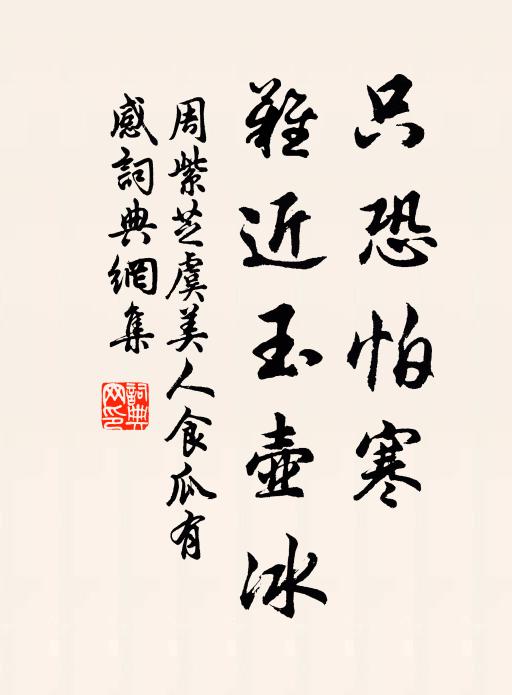 只恐怕寒
難近玉壺冰
周紫芝虞美人食瓜有
感詞典網集
詞典
网印